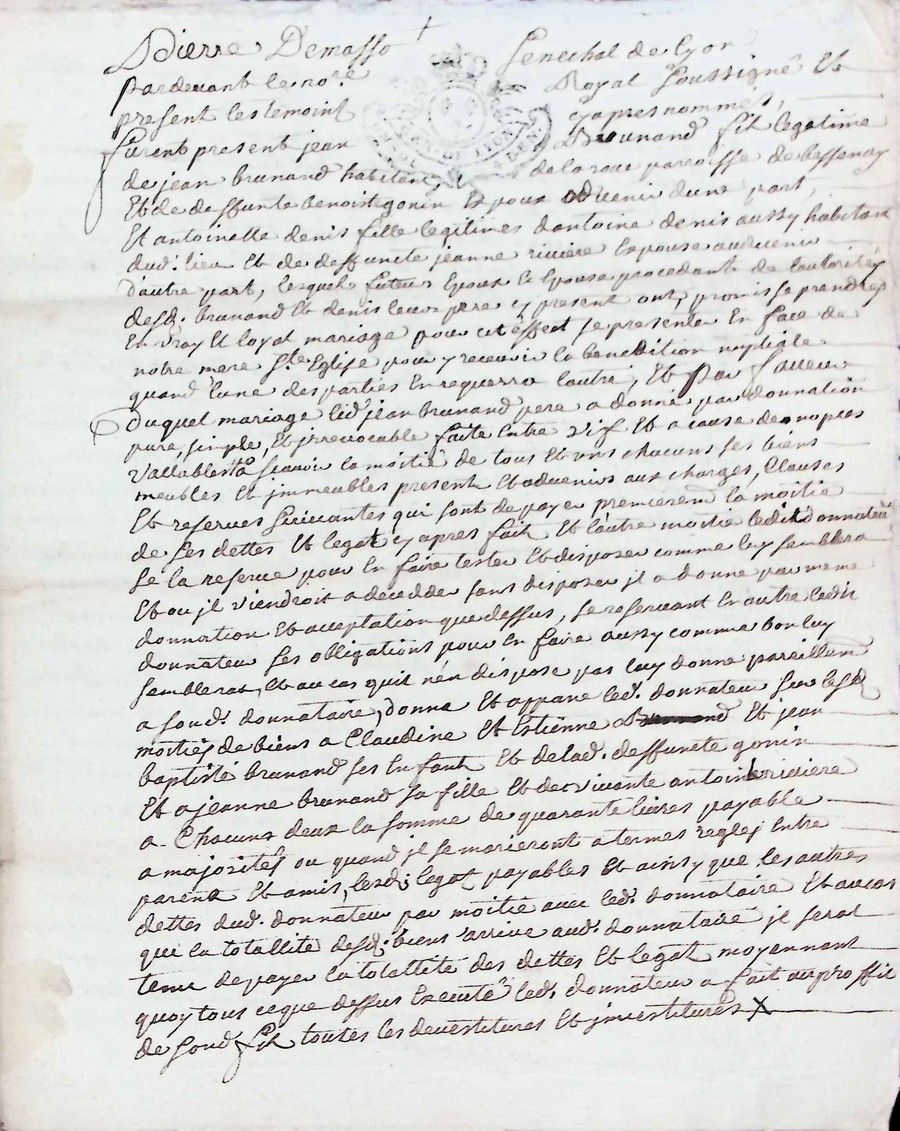 Pierre Demasso Senechal de Lyon
Pardevant le no.re Royal Soussigné Et
present les temoint cyapres nommés,
furent present jean Brunand fils legitime
de jean brunand habitant de la roue parroisse de bessenay
Et de deffunte benoiste gonin Epoux advenir dune part,
Et antoinette denis fille legitimes dantoine denis aussy habitant
dud. lieu Et de deffuncte jeanne riviere Epouse advenir
d'autre part, lesquel futeur Epoux Et Epouse procedants de lautorité
desd. brunand Et denis leurs pere cy present ont promis se prendre
En vray Et loyal mariage pour cet Effect se presenter En face de
notre mere S.te Eglise pour y recevoir la benedition nuptiale
quand lune des parties En requerra lautre, Et Par faveur
Duquel mariage led. jean brunand pere a donné par donnation
pure, simple, Et jrrevocable faite Entre vif Et a cause de nopces
vallable scavoir la moitié de tous Et uns chacuns ses biens
meubles Et jmmeubles present Et advenirs aux charges, Clauses
Et reserves suivantes qui sont de payer premierem la moitie
de ses dettes Et legat cy apres fait Et lautre moitie ledit donnateur
se la reserve pour En faire tester Et disposer comme luy semblera
Et ou jl viendroit a decedder sans disposer jl a donne par meme
donnation Et acceptation que dessus, se reservant En outre ledit
donnateur ses obligations pour En faire aussy comme bon luy
semblerat, Et au cas quil n'en dispose pas luy donne pareillem
a soud. donnataire, donne Et appane led. donnateur sur lesd
moitiés de biens a Claudine Et Estienne Et jean
baptiste brunand ses Enfant Et de lad. deffuncte gonin
Et a jeanne brunand sa fille Et de vivante antoine riviere
a Chacuns deux la somme de quarante livres payable
a majorités ou quand jl se marieront a termes regles Entre
parents Et amis, lesd. legat payables Et ainsy que les autres
dettes dud. donnateur par moitie avec led. donnataire Et au cas
que la totallité desd. biens arrive aud. donnataire jl serat
tenu de payer la totallité des dettes Et legat moyennant
quoy tous ce que dessus Executé led. donnateur a fait au proffit
de soud fils toutes les devestitures Et jnvestitures X